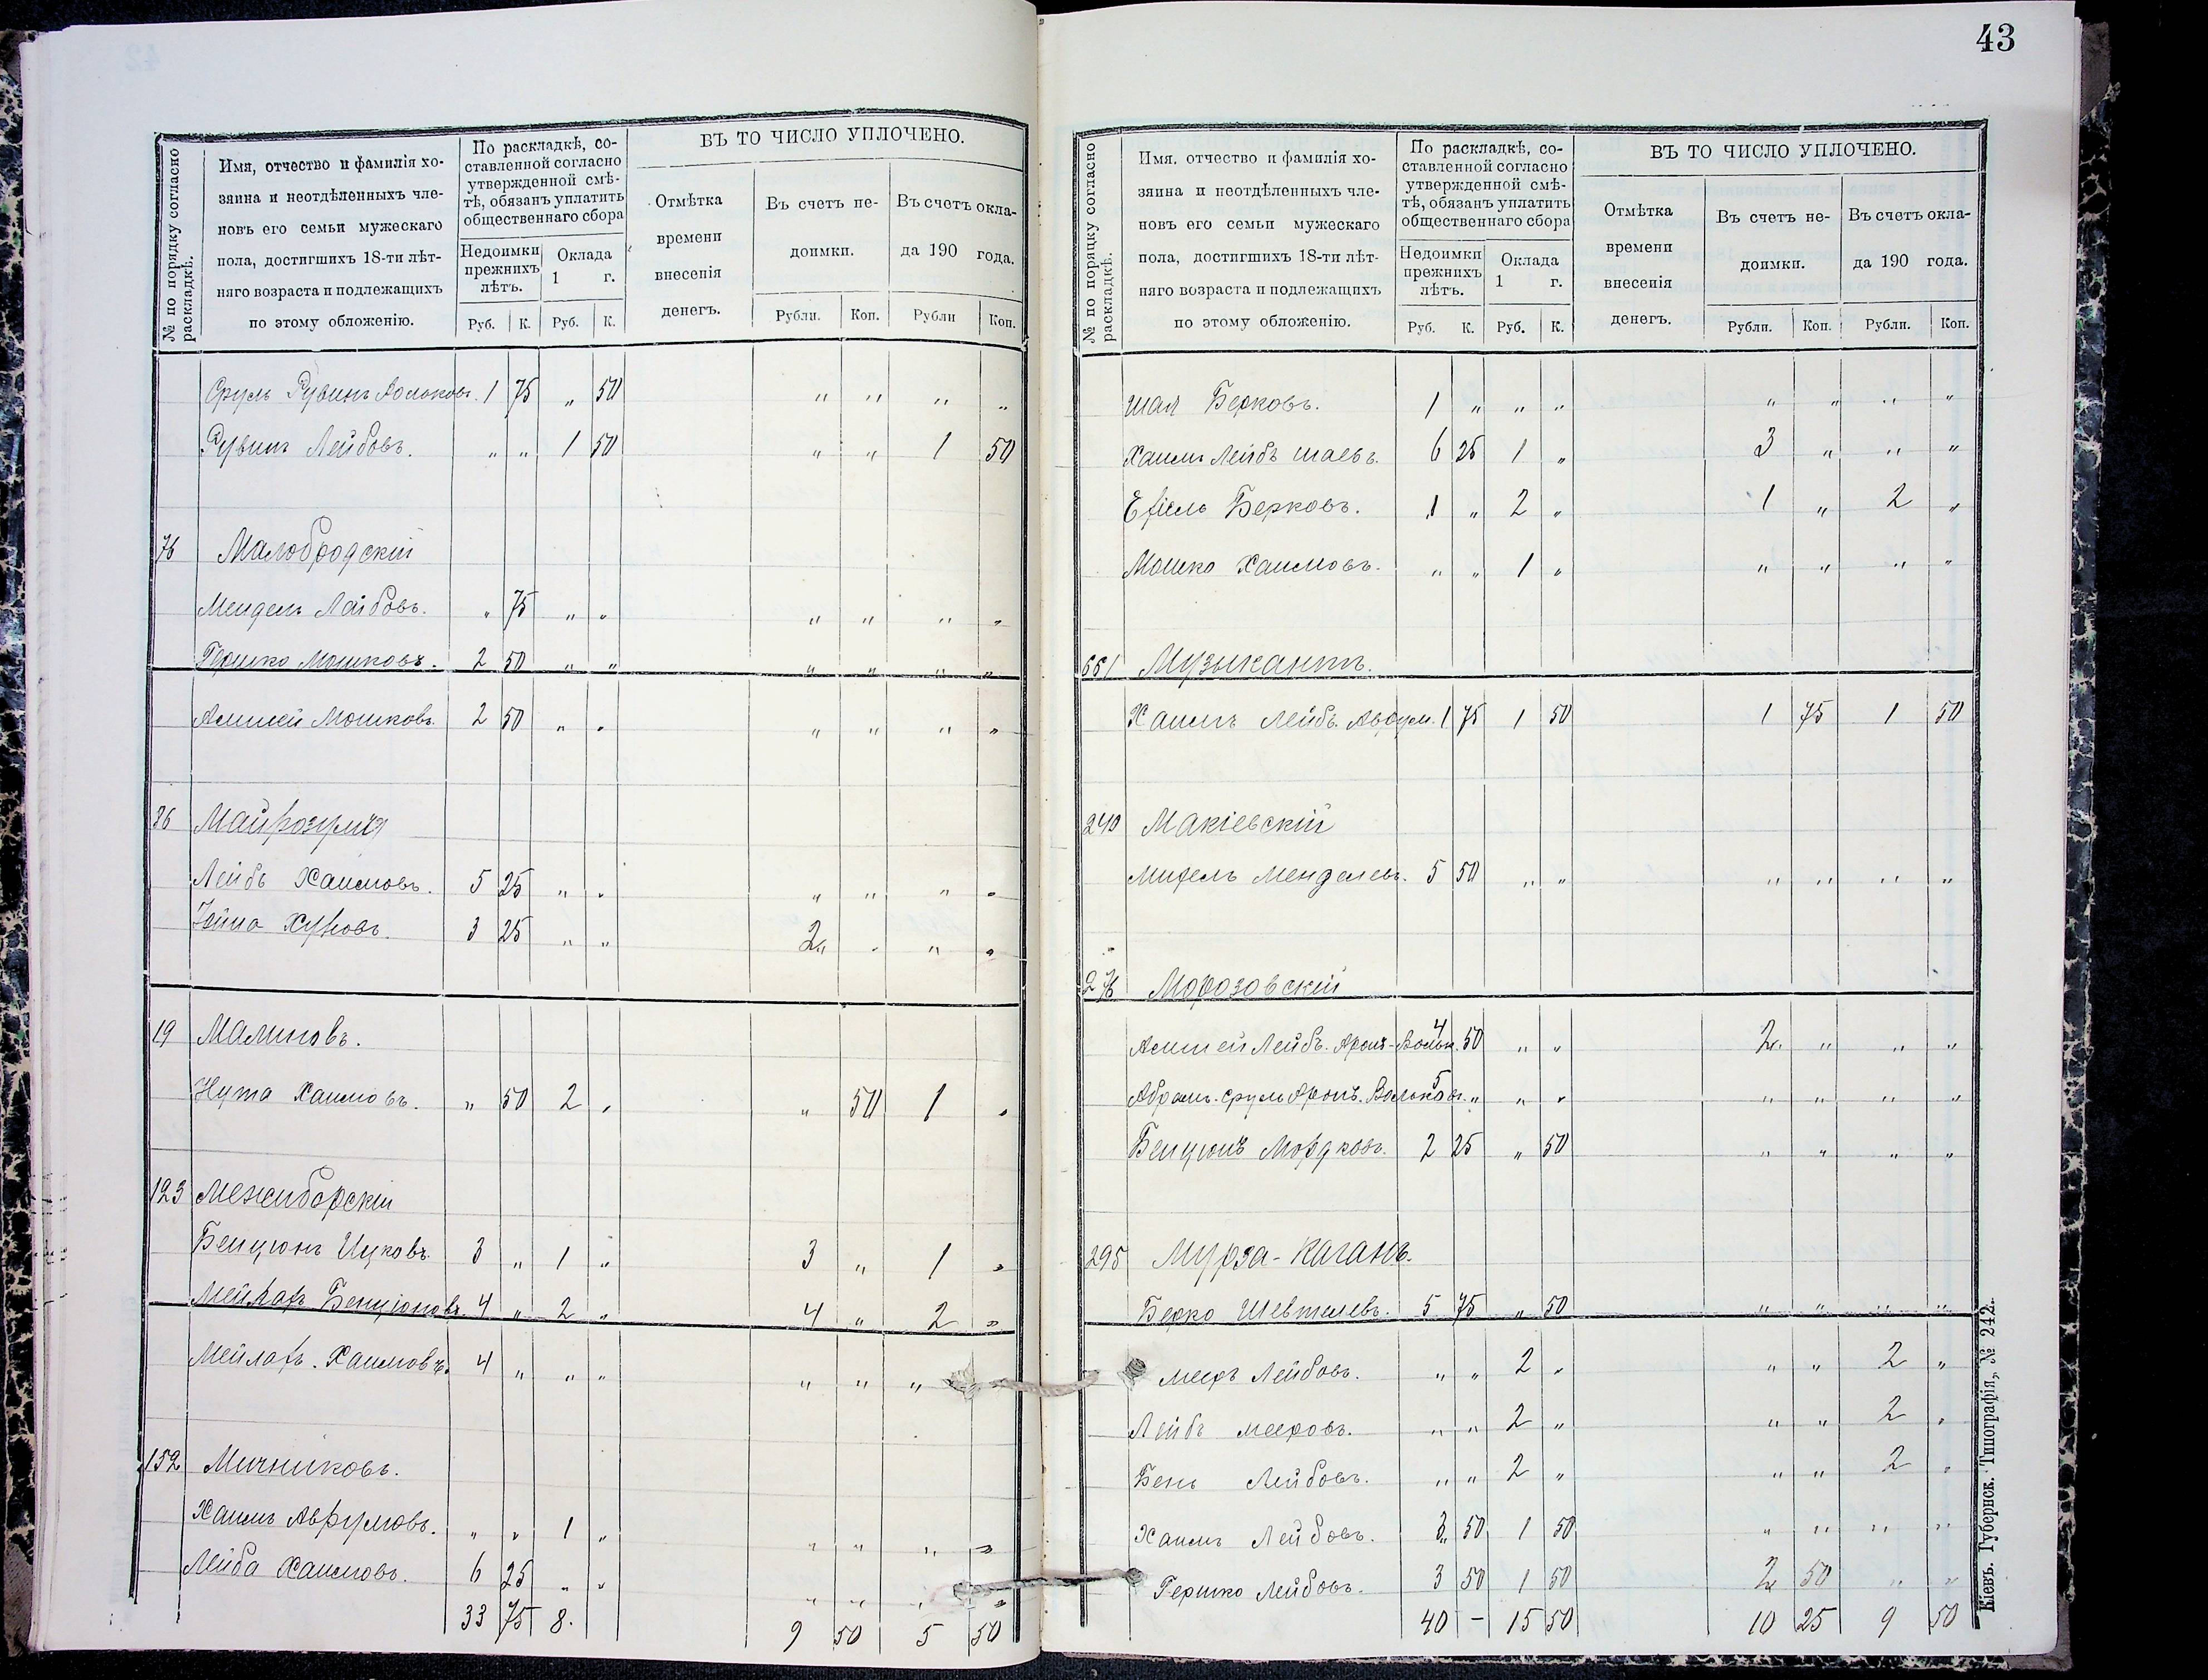 № по порядку согласно раскладкѣ.
Имя, отчество и фамилія хо-
зяина и неотдѣленныхъ чле-
новъ его семьи мужескаго
пола, достигшихъ 18-ти лѣт-
няго возраста и подлежащихъ
по этому обложенію.
По раскладкѣ, со-
ставленной согласно
утвержденной смѣ-
тѣ, обязанъ уплатить
общественнаго сбора
Недоимки прежнихъ лѣтъ.
Оклада 1 г.
Руб. К. Руб. К.
ВЪ ТО ЧИСЛО УПЛОЧЕНО.
Отмѣтка времени внесенія денегъ.
Въ счетъ не-
доимки.
Въ счетъ окла-
да 190 года.
Рубли. Коп. Рубли Коп.
Сруль Рувинъ Вольковъ. 1 75 " 50 " " " "
Рувинъ Лейбовъ. " " 1 50 " " 1 50
76 Малобродскій
Мендель Лейбовъ. " 75 " " " " " "
Гершко Мошковъ. 2 50 " " " " " "
Мошковъ. 2 50 " " " " " "
36
Лейбъ Хаимовъ. 5 25 " " " " " "
3 25 " " 2 " " "
19 Малиновъ.
Нута Хаимовъ. " 50 2 " " 50 1 "
123 Межиборскій
Бенціонъ Ицковъ. 3 " 1 " 3 " 1 "
Мейлахъ Бенціоновъ. 4 " 2 " 4 " 2 "
Мейлахъ. Хаимовъ. 4 " " " " " "
152 Мичниковъ.
Хаимъ Аврумовъ. " " 1 " " " " "
Лейба Хаимовъ. 6 25 " " " " " "
33 75 8. 9 50 5 50
43
№ по порядку согласно раскладкѣ.
Имя, отчество и фамилія хо-
зяина и неотдѣленныхъ чле-
новъ его семьи мужескаго
пола, достигшихъ 18-ти лѣт-
няго возраста и подлежащихъ
по этому обложенію.
По раскладкѣ, со-
ставленной согласно
утвержденной смѣ-
тѣ, обязанъ уплатить
общественнаго сбора
Недоимки прежнихъ лѣтъ.
Оклада 1 г.
Руб. К. Руб. К.
ВЪ ТО ЧИСЛО УПЛОЧЕНО.
Отмѣтка времени внесенія денегъ.
Въ счетъ не-
доимки.
Въ счетъ окла-
да 190 года.
Рубли. Коп. Рубли. Коп.
Шая Берковъ. 1 " " " " " " "
Хаимъ Лейбъ Шаевъ. 6 25 1 " 3 " " "
Ехіель Берковъ. 1 " 2 " 1 " 2 "
Мошко Хаимовъ. " " 1 " " " " "
661 Музыкантъ.
Хаимъ Лейбъ. Аврум. 1 75 1 50 1 75 1 50
240 Макіевскій
Михель Менделевъ. 5 50 " " " " " "
276 Морозовскій
Лейбъ. Аронъ-Вольк. 4 50 " " 2 " " "
Абрамъ. Сруль Аронъ. Вольковъ. 5 " " " " " " "
Бенціонъ Мордковъ. 2 25 " 50 " " " "
295 Мурза-Каганъ.
Берко Шевтелевъ. 5 75 " 50 " " " "
Мееръ Лейбовъ. " " 2 " " " 2 "
Лейбъ Мееровъ. " " 2 " " " 2 "
Бень Лейбовъ. " " 2 " " " 2 "
Хаимъ Лейбовъ. 3 50 1 50 " " " "
Гершко Лейбовъ. 3 50 1 50 2 50 " "
40 - 15 50 10 25 9 50
Кіевъ. Губернск. Типографія, № 242.